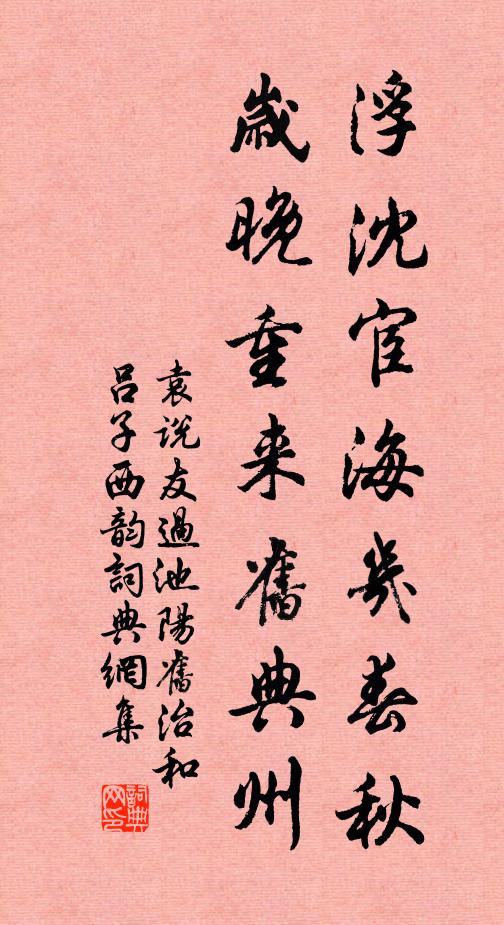 浮沈宦海幾春秋
歲晚重来舊典州
袁说友過池陽舊治和
吕子西韵詞典網集
詞典网印